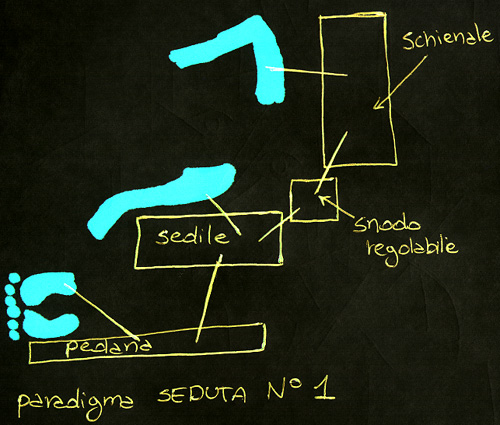 schienale
sedile
snodo
regolabile
pedana
paradigma SEDUTA N° 1